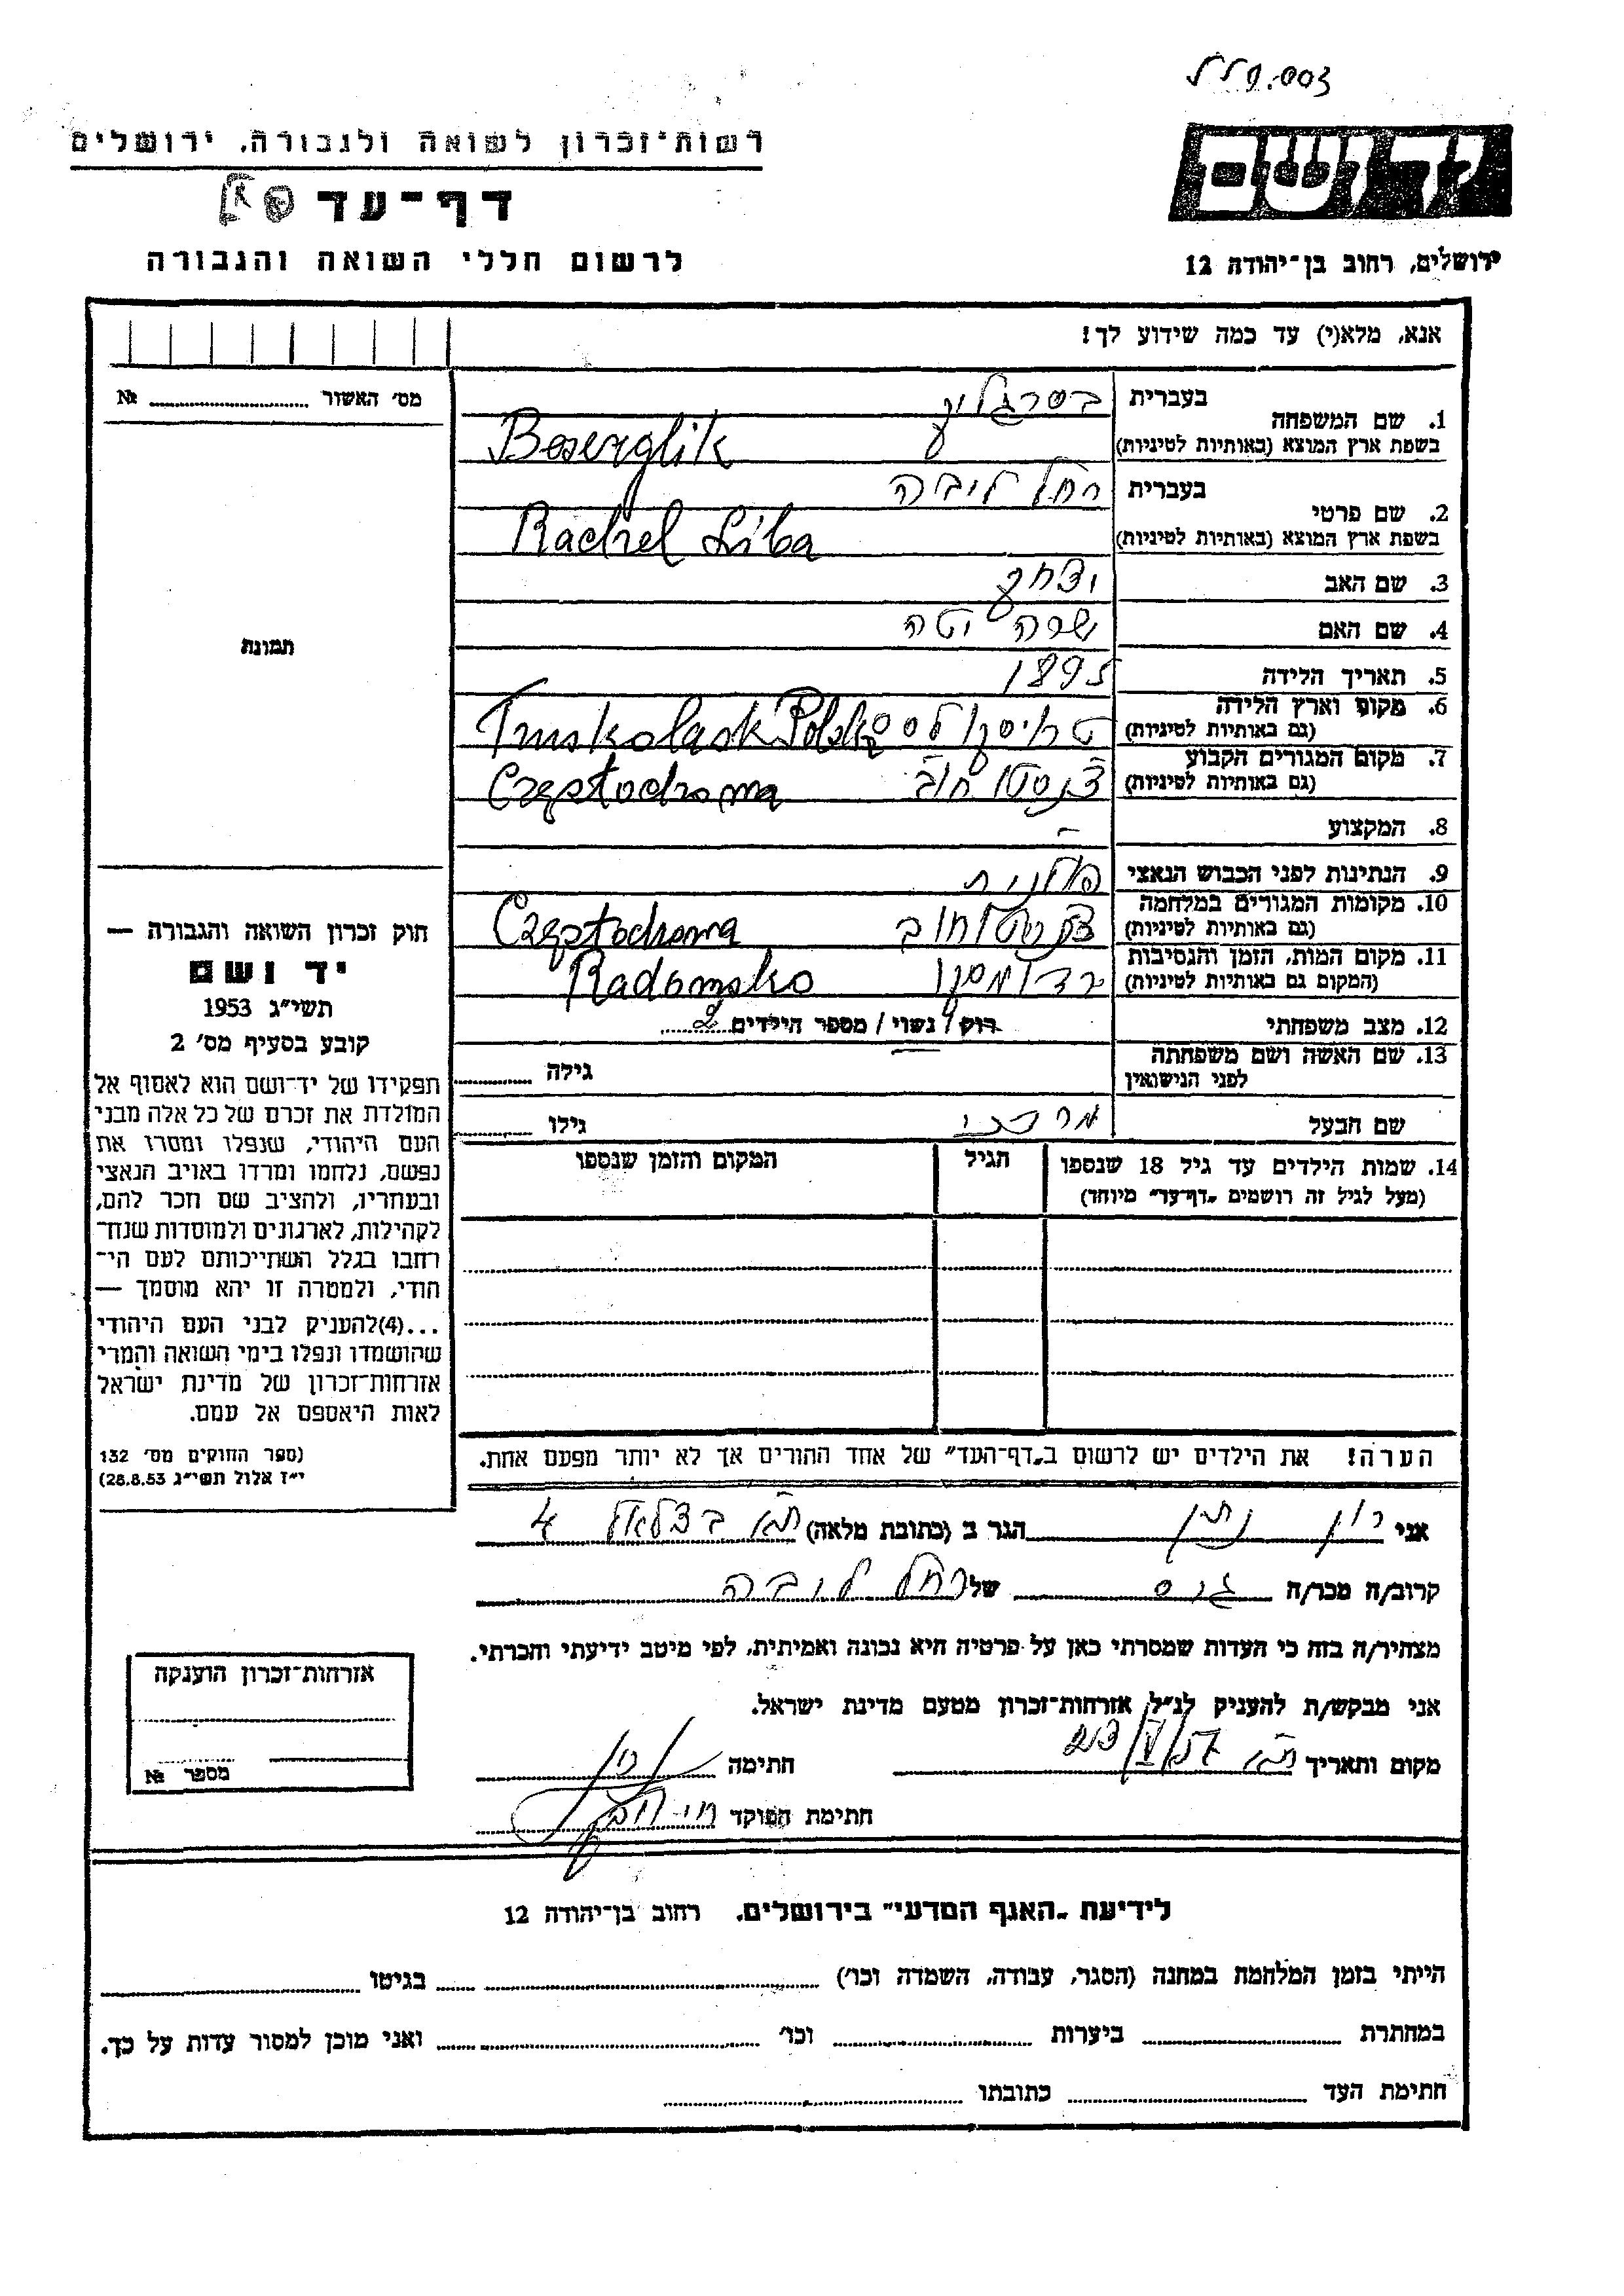 רשות־זכרון לשואה ולגבורה, ירושלים
דף־עד
לרשום חללי השואה והגבורה
ידושם
ירושלים, רחוב בן־יהודה 12
אנא, מלא(י) עד כמה שידוע לך!
מס׳ האשור №
1. שם המשפחה
בעברית
בשפת ארץ המוצא (באותיות לטיניות)
Beserglik
2. שם פרטי
בעברית רחל ליבה
בשפת ארץ המוצא (באותיות לטיניות)
Rachel Liba
3. שם האב יצחק
4. שם האם שרה יטה
5. תאריך הלידה 1895
6. מקום וארץ הלידה
(גם באותיות לטיניות) Truskolask Polska
7. מקום המגורים הקבוע
(גם באותיות לטיניות) צ'נסטוחוב Częstochowa
8. המקצוע -
9. הנתינות לפני הכבוש הנאצי פולנית
10. מקומות המגורים במלחמה
(גם באותיות לטיניות) צ'נסטוחוב Częstochowa
11. מקום המות, הזמן והנסיבות
(המקום גם באותיות לטיניות) רדומסקו Radomsko
12. מצב משפחתי רוק / נשוי / מספר הילדים 2
13. שם האשה ושם משפחתה
לפני הנישואין גילה
שם הבעל מרדכי גילו
14. שמות הילדים עד גיל 18 שנספו
(מעל לגיל זה רושמים „דף־עד” מיוחד)
הגיל
המקום והזמן שנספו
הערה! את הילדים יש לרשום ב„דף־העד” של אחד ההורים אך לא יותר מפעם אחת.
תמונה
חוק זכרון השואה והגבורה —
יד ושם
תשי״ג 1953
קובע בסעיף מס׳ 2
תפקידו של יד־ושם הוא לאסוף אל
המולדת את זכרם של כל אלה מבני
העם היהודי, שנפלו ומסרו את
נפשם, נלחמו ומרדו באויב הנאצי
ובעוזריו, ולהציב שם וזכר להם,
לקהילות, לארגונים ולמוסדות שנח־
רבו בגלל השתייכותם לעם הי־
הודי, ולמטרה זו יהא מוסמך —
...(4)להעניק לבני העם היהודי
שהושמדו ונפלו בימי השואה והמרי
אזרחות־זכרון של מדינת ישראל
לאות היאספם אל עמם.
(ספר החוקים מס׳ 132
י״ז אלול תשי״ג 28.8.53)
אני רון נתן הגר ב (כתובת מלאה) ת״א בצלאל 4
קרוב/ה מכר/ה גיס של רחל ליבה
מצהיר/ה בזה כי העדות שמסרתי כאן על פרטיה היא נכונה ואמיתית, לפי מיטב ידיעתי והכרתי.
אני מבקש/ת להעניק לנ״ל אזרחות־זכרון מטעם מדינת ישראל.
מקום ותאריך ת״א חתימה
חתימת הפוקד
אזרחות־זכרון הוענקה
מספר №
לידיעת „האגף המדעי” בירושלים, רחוב בן־יהודה 12
הייתי בזמן המלחמה במחנה (הסגר, עבודה, השמדה וכו׳) בגיטו
במחתרת ביערות וכו׳ ואני מוכן למסור עדות על כך.
חתימת העד כתובתו